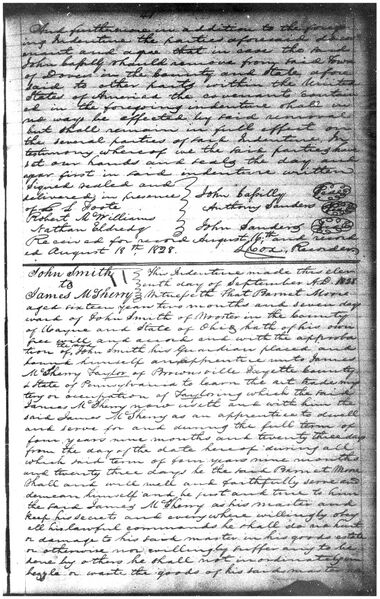 And furthermore in addition to the forego
ing Indenture the parties aforesaid do cove
nant and agree that in case the said
John Cahilly should remove from said Town
of Dover in the County and State afore
said to other parts within the United
States of America the covenant contain
ed in the foregoing indenture shall in
no ways be effected by said removal
but shall remain in full effect on
the several parties of said Indenture. In
testimony whereof we the said parties have
set our hands and seals the day and
year first in said indenture written
Signed sealed and
delivered in presence
of Foote
Robert McWilliams
Nathan Eldredg
John Cahilly Seal
Anthony Sanders Seal
John Sanders Seal
Received for record August 16th and record
ed August 18th, 1828. Cox, Recorder
John Smith
to
James McSherry
This Indenture made this eleventh
day of September A.D. 1828
Witnesseth That Barnet Mone
aged sixteen years two months and seven days
ward of John Smith of Wooster in the County
of Wayne and State of Ohio hath of his own
free will and accord and with the approba
tion of John Smith his Guardian placed and
bound himself an apprentice unto James
McSherry Taylor of Brownsville Fayette County
& State of Pennsylvania to learn the art trade mys
tery or occupation of Taylor which the said
James McSherry now useth and with him the
said James McSherry as an apprentice to dwell
and serve for and during the full term of
four years nine months and twenty three days
from the day of the date hereof during all
which said term of four years nine months
and twenty three days he the said Barnet Mone
shall and will well and faithfully serve and
demean himself and be just and true to him
the said James McSherry as his master and
keep his secrets and every where willingly obey
all his lawful commands he shall do no hurt
or damage to his said master in his goods estate
or otherwise nor willingly suffer any to be
done by others he shall not
bezzle or waste the goods of his said master